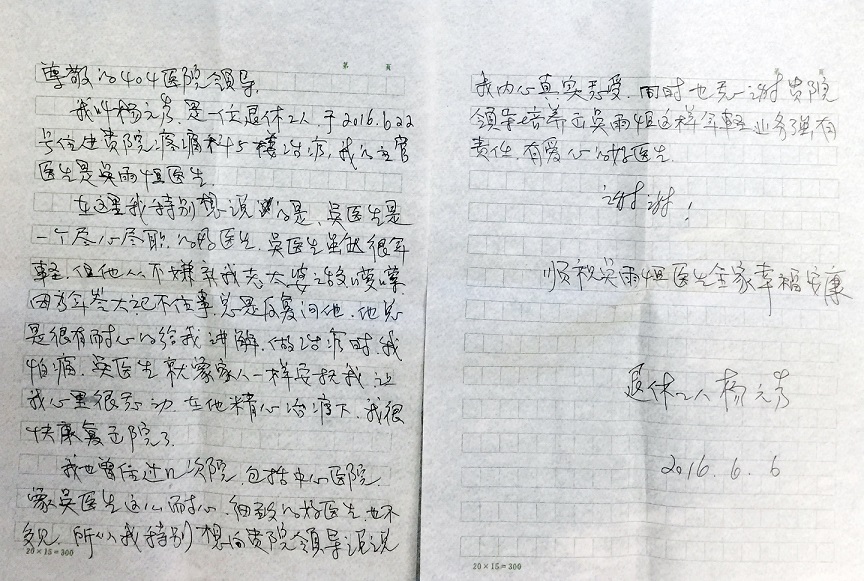 第 页
尊敬的404医院领导,
我叫杨元秀,是一位退休工人,于2016.6.22
号住进贵院疼痛科5楼治疗,我的主管
医生是吴雨姐医生
在这里我特别想说的是、吴医生是
一个尽心尽职的好医生,吴医生虽然很年
轻,但他从不嫌弃我老太婆的啰嗦
因为年岁太大记不住事,总是反复问他,他总
是很有耐心的给我讲解,做治疗时,我
怕痛,吴医生就像家人一样安抚我,让
我心里很感动,在他精心治疗下,我很
快康复出院了
我也曾住过几次院,包括中心医院,
像吴医生这么耐心、细致的好医生也不
多见,所以我特别想向贵院领导说说
20×15=300
第 页
我内心真实感受,同时也感谢贵院
领导培养出吴雨姐这样年轻业务强,有
责任,有爱心的好医生.
谢谢!
顺祝吴雨姐医生全家幸福安康
退休工人杨元秀
2016.6.6
20×15=300